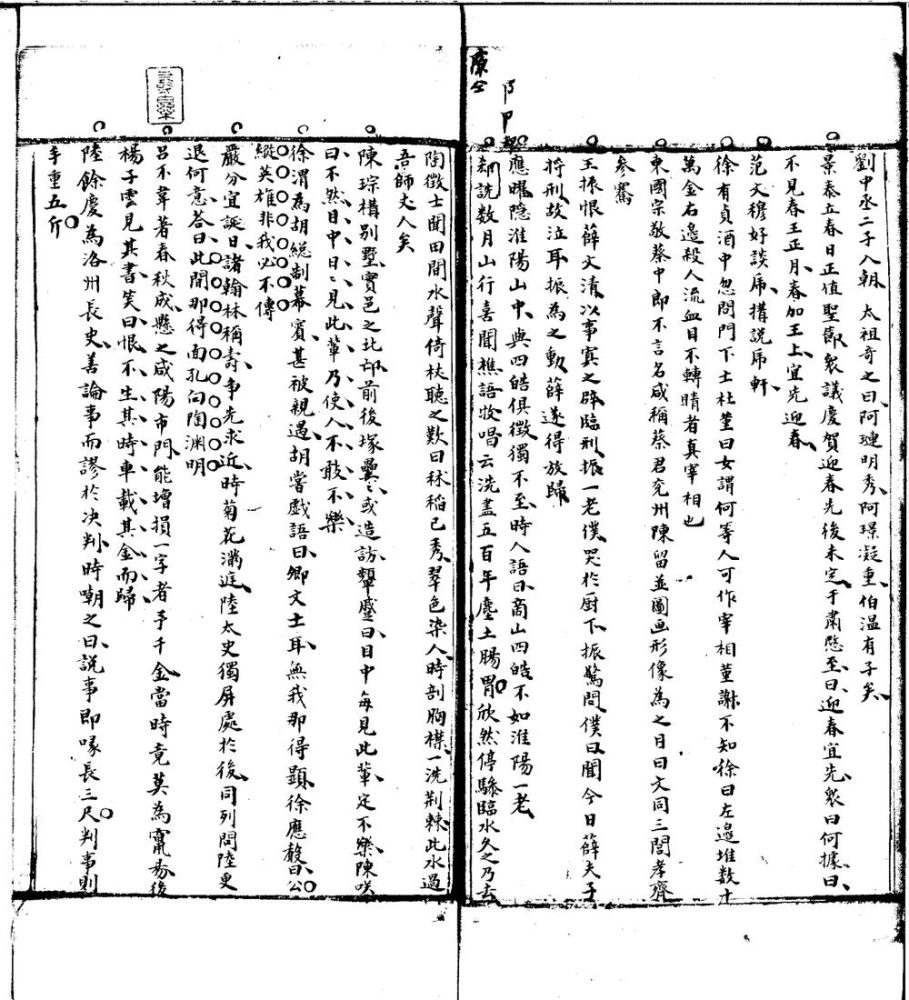 劉中丞二子入朝太祖奇之曰阿璉明秀阿璟凝重伯温有子矣
景泰立春日正值聖節衆議慶賀迎春先後未定于肅愍至曰迎春宜先衆曰何據曰
不見春王正月春加王上宜先迎春
范文穆好談乕搆説乕軒
徐有貞酒中忽問門下士杜堇曰女謂何等人可作宰相堇謝不知徐曰左邉堆数十
萬金右邉殺人流血目不轉睛者真宰相也
東國宗敬蔡中郎不言名咸稱蔡君兖州陳留並圖画形像為之目曰文同三閭孝齊
參騫
王振恨薛文清以事寘之辟臨刑振一老僕哭於厨下振驚問僕曰聞今日薛夫子
将刑故泣耳振為之動薛遂得放歸
應曜隐淮陽山中與四皓俱徵獨不至時人語曰商山四皓不如淮陽一老
郝詵数月山行喜聞樵語牧唱云洗盡五百年塵土腸胃欣然停驂臨水久之乃去
陶徵士聞田間水聲倚杖聽之歎曰秫稻已秀翠色染人時剖胸襟一洗荆棘此水過
吾師丈人矣
陳琮構别墅寔邑之北邙前後塚纍〻或造訪顰蹙曰目中每見此輩定不樂陳咲
曰不然日中日〻見此輩乃使人不敢不樂
徐渭為胡緫制幕賓甚被親遇胡嘗戯語曰卿文士耳無我那得顕徐應聲曰公
縱英雄非我必不傳
嚴分宜誕日諸翰林稱壽争先求近時菊花滿庭陸太史獨屏處於後同列問陸更
退何意荅曰此間那得面孔向陶渊明
吕不韋著春秋成懸之咸陽市門能增損一字者予千金當時竟莫為甯易後
楊子雲見其書笑曰恨不生其時車載其金而歸
陸餘慶為洛州長史善論事而謬於决判時嘲之曰説事即喙長三尺判事則
手重五斤